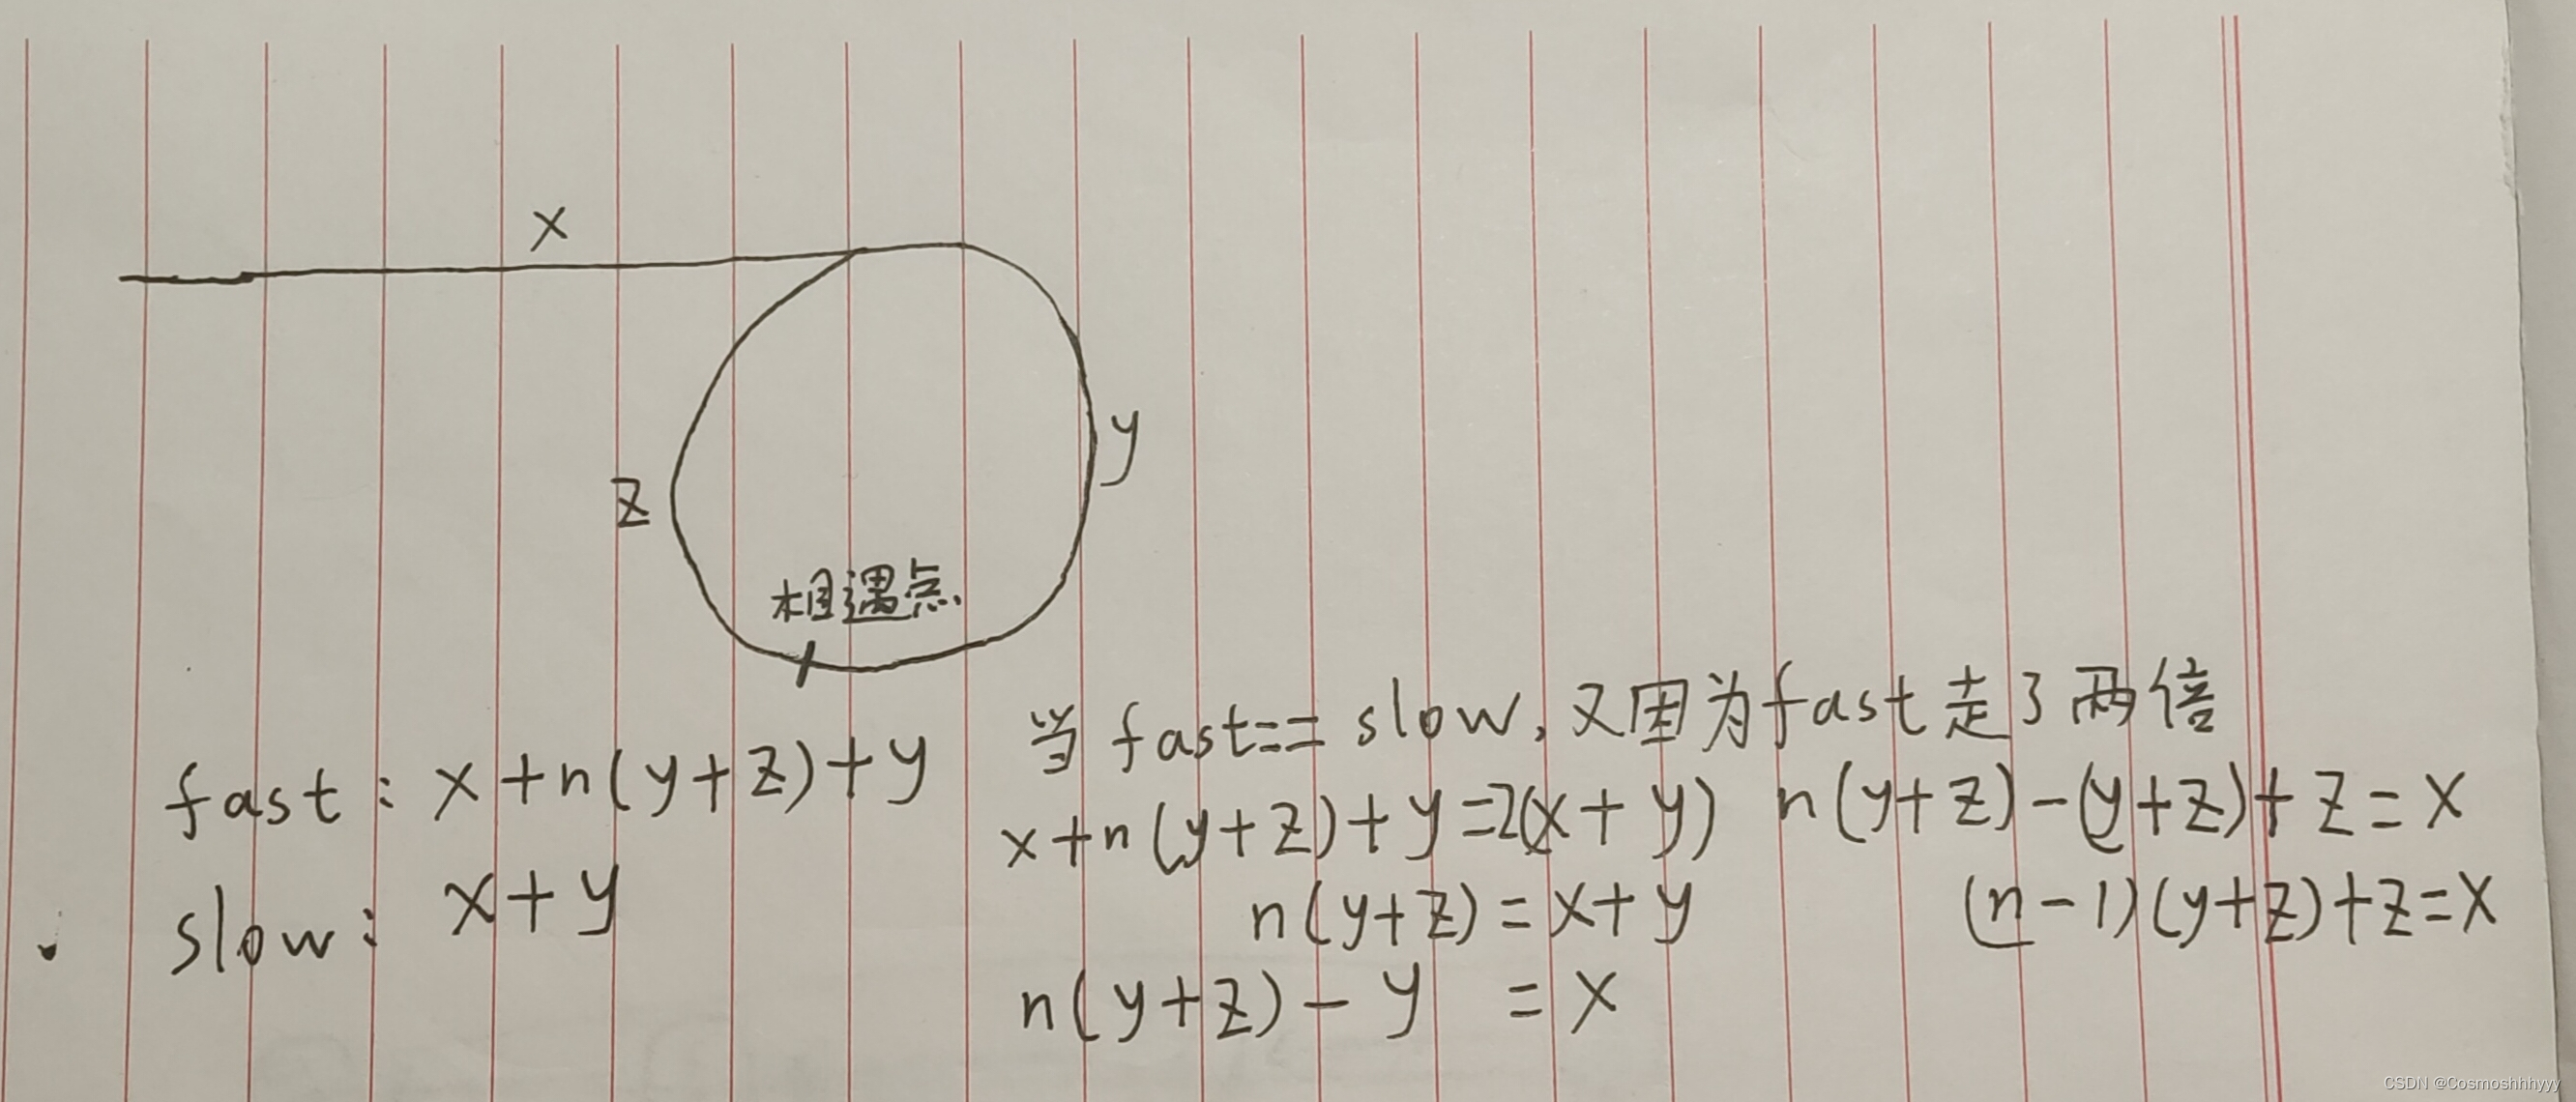 x
y
z
相遇点
fast: x+n(y+z)+y
slow: x+y
当fast==slow,又因为fast走了两倍
x+n(y+z)+y=2(x+y)
n(y+z)=x+y
n(y+z)-y =x
n(y+z)-(y+z)+z=x
(n-1)(y+z)+z=x
CSDN @Cosmoshhhyyy